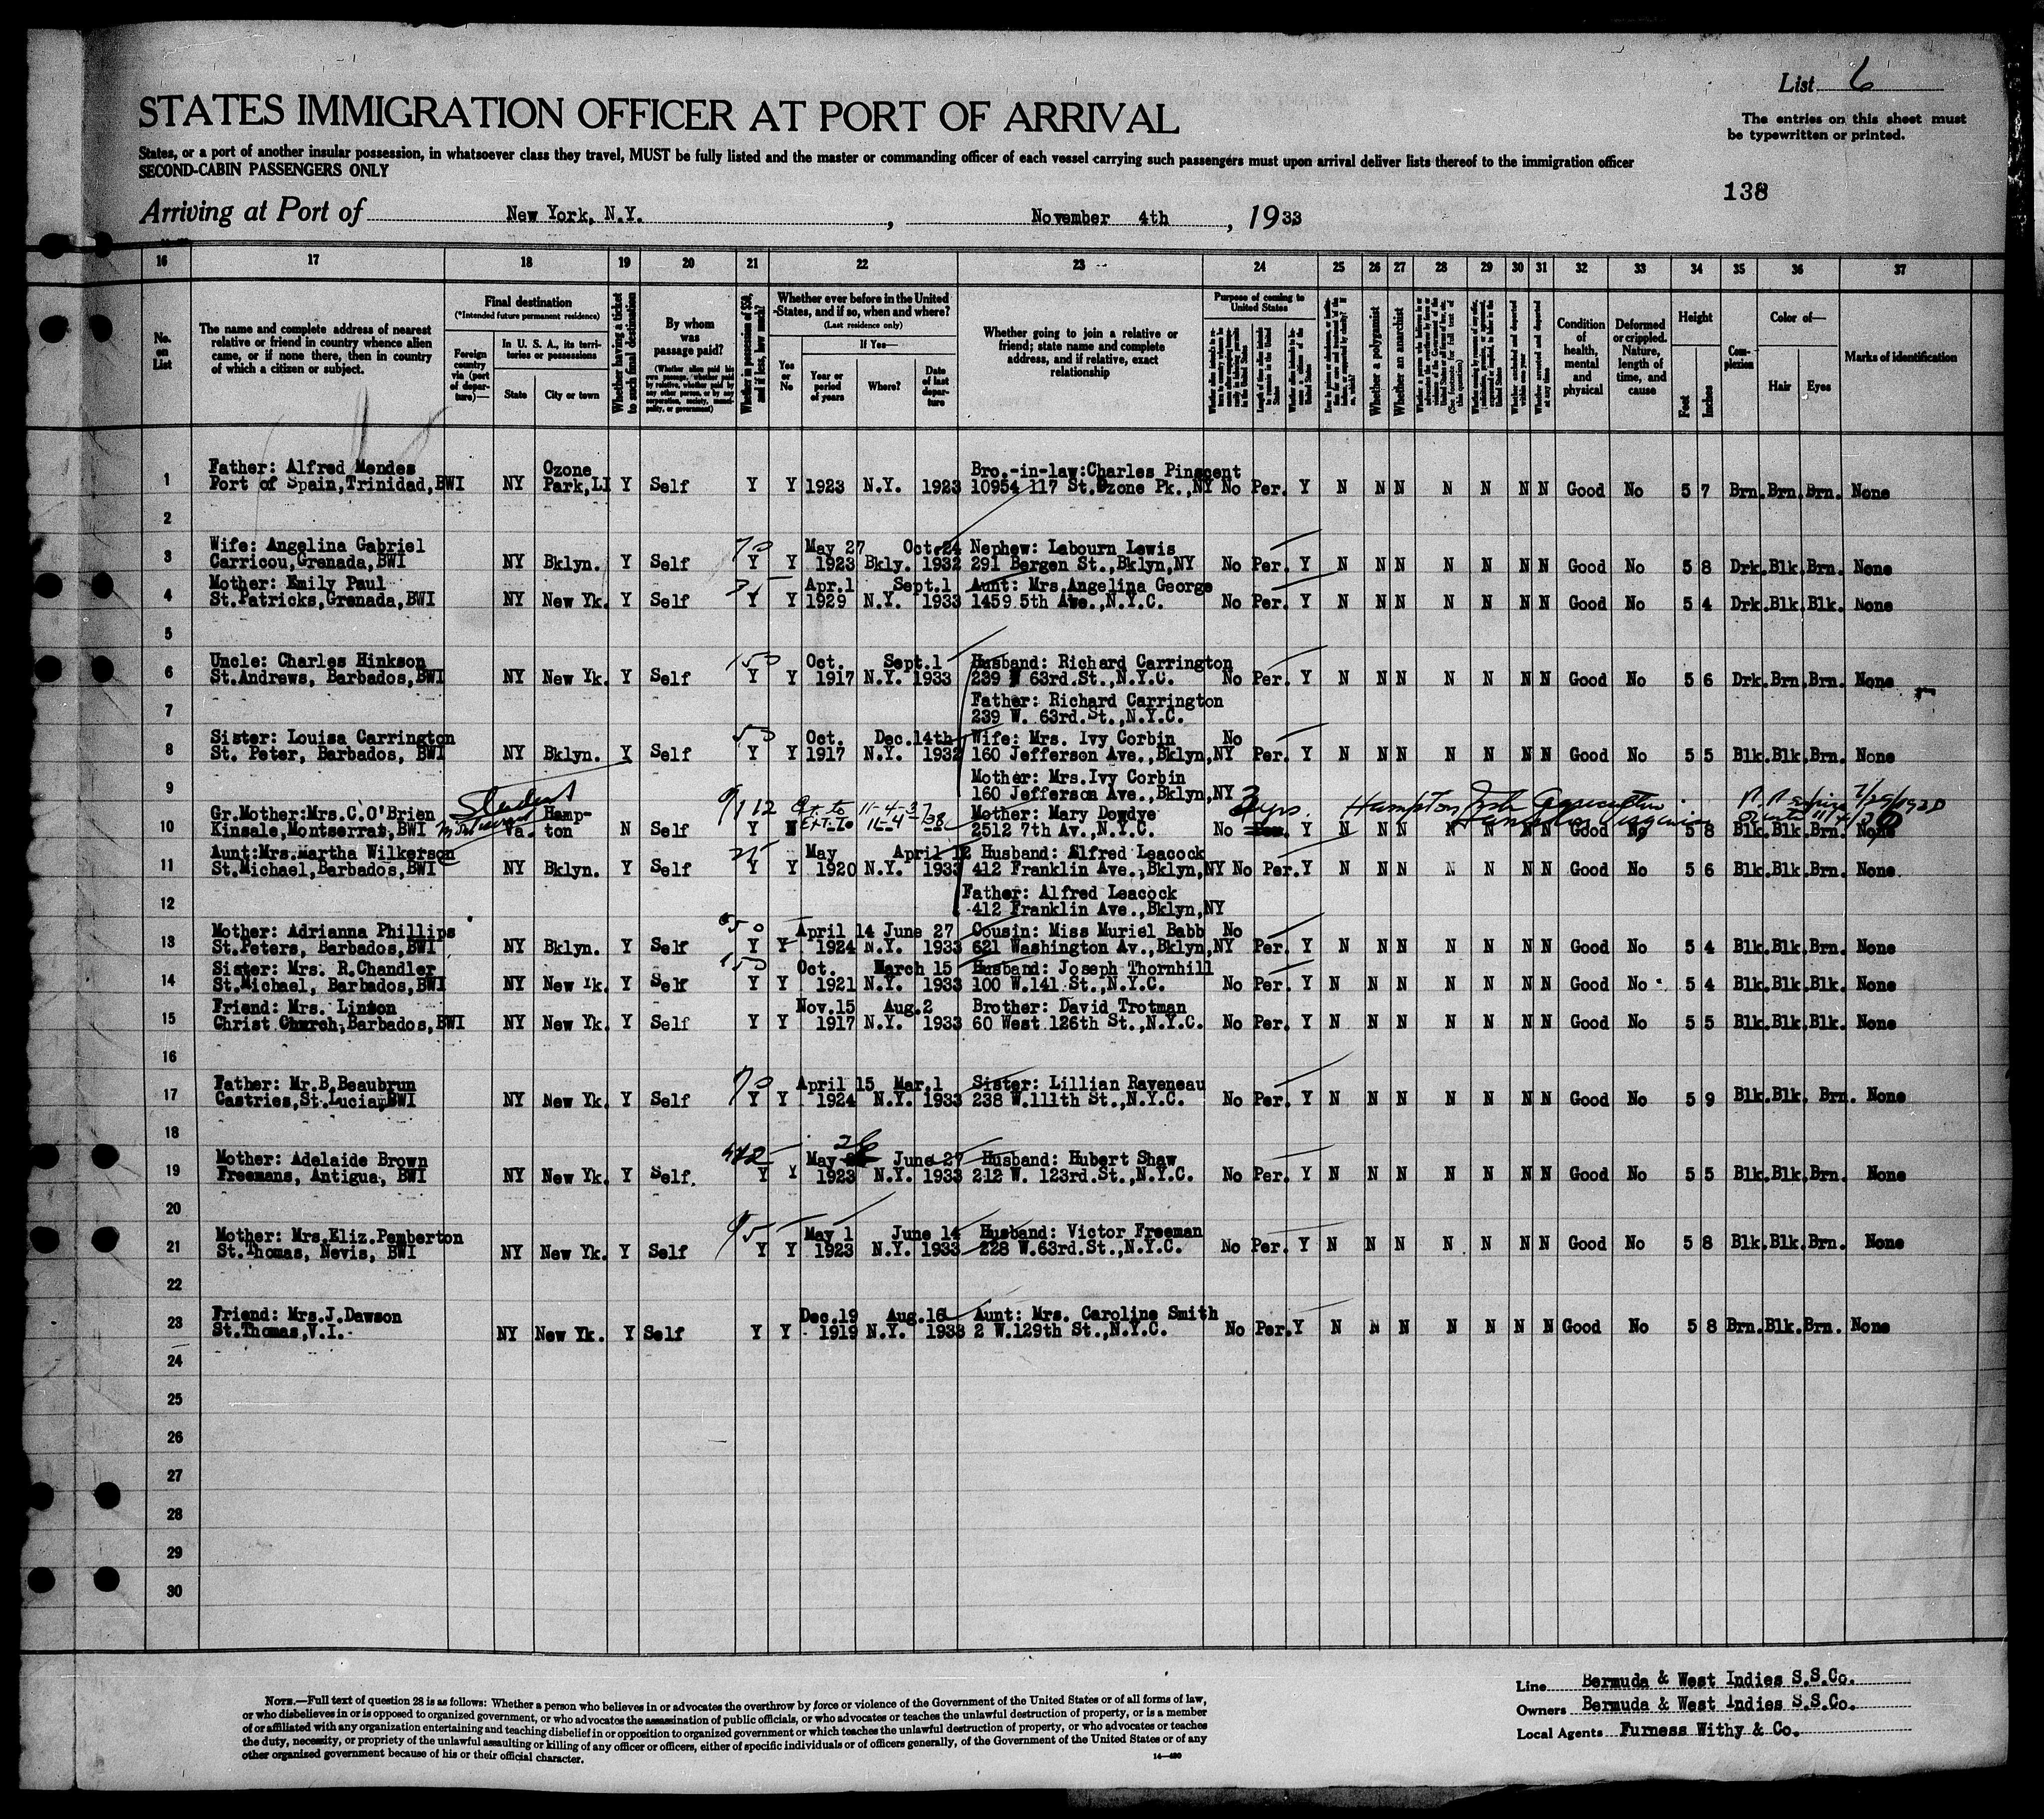 List 6
STATES IMMIGRATION OFFICER AT PORT OF ARRIVAL
The entries on this sheet must
be typewritten or printed.
States, or a port of another insular possession, in whatsoever class they travel, MUST be fully listed and the master or commanding officer of each vessel carrying such passengers must upon arrival deliver lists thereof to the immigration officer
SECOND-CABIN PASSENGERS ONLY
138
Arriving at Port of New York, N.Y. , November 4th , 1933
16 17 18 19 20 21 22 23 24 25 26 27 28 29 30 31 32 33 34 35 36 37
No.
on
List
The name and complete address of nearest
relative or friend in country whence alien
came, or if none there, then in country
of which a citizen or subject.
Final destination
(*Intended future permanent residence)
Foreign
country
via (port
of depar-
ture)—
In U. S. A., its terri-
tories or possessions
State City or town
Whether having a ticket
to such final destination
By whom
was
passage paid?
(Whether alien paid his
own passage, whether paid
by relative, whether paid by
any other person, or by any
corporation, society, munici-
pality, or government)
Whether in possession of $50,
and if less, how much?
Whether ever before in the United
States, and if so, when and where?
(Last residence only)
Yes
or
No
If Yes—
Year or
period
of years
Where?
Date
of last
depar-
ture
Whether going to join a relative or
friend; state name and complete
address, and if relative, exact
relationship
Purpose of coming to
United States
Whether a polygamist
Whether an anarchist
Condition
of
health,
mental
and
physical
Deformed
or crippled.
Nature,
length of
time, and
cause
Height
Feet Inches
Com-
plexion
Color of—
Hair Eyes
Marks of identification
Father: Alfred Mendes Ozone Bro.-in-law:Charles Pinscent
1 Port of Spain,Trinidad,BWI NY Park,LI Y Self Y Y 1923 N.Y. 1923 10954 117 St.Ozone Pk.,NY No Per. Y N N N N N N N Good No 5 7 Brn. Brn. Brn. None
2
Wife: Angelina Gabriel 70 May 27 Oct.24 Nephew: Labourn Lewis
3 Carricou,Grenada,BWI NY Bklyn. Y Self Y Y 1923 Bkly. 1932 291 Bergen St.,Bklyn,NY No Per. Y N N N N N N N Good No 5 8 Drk. Blk. Brn. None
Mother: Emily Paul Apr.1 Sept.1 Aunt: Mrs.Angelina George
4 St.Patricks,Grenada,BWI NY New Yk. Y Self Y Y 1929 N.Y. 1933 1459 5th Ave.,N.Y.C. No Per. Y N N N N N N N Good No 5 4 Drk. Blk. Blk. None
5
Uncle: Charles Hinkson 150 Oct. Sept.1 Husband: Richard Carrington
6 St.Andrews, Barbados,BWI NY New Yk. Y Self Y Y 1917 N.Y. 1933 239 W 63rd.St.,N.Y.C. No Per. Y N N N N N N N Good No 5 6 Drk. Brn. Brn. None
Father: Richard Carrington
7 239 W. 63rd.St.,N.Y.C.
Sister: Louisa Carrington 50 Oct. Dec.14th Wife: Mrs. Ivy Corbin No
8 St. Peter, Barbados, BWI NY Bklyn. Y Self Y Y 1917 N.Y. 1932 160 Jefferson Ave.,Bklyn,NY Per. Y N N N N N N N Good No 5 5 Blk. Blk. Brn. None
Mother: Mrs.Ivy Corbin
9 160 Jefferson Ave.,Bklyn,NY
Student 3 yrs. Hampton
Gr.Mother:Mrs.C.O'Brien Hamp- Ext. to 11-4-37 Mother: Mary Dowdye
10 Kinsale,Montserrat,BWI Va. ton N Self Y N Ext. to 11-4-38 2512 7th Av.,N.Y.C. No Per. Y N N N N N N N Good No 5 8 Blk. Blk. Brn. None
Aunt:Mrs.Martha Wilkerson May April 12 Husband: Alfred Leacock
11 St.Michael,Barbados,BWI NY Bklyn. Y Self Y Y 1920 N.Y. 1933 412 Franklin Ave.,Bklyn,NY No Per. Y N N N N N N N Good No 5 6 Blk. Blk. Brn. None
Father: Alfred Leacock
12 412 Franklin Ave.,Bklyn,NY
Mother: Adrianna Phillips April 14 June 27 Cousin: Miss Muriel Babb No
13 St.Peters, Barbados,BWI NY Bklyn. Y Self Y Y 1924 N.Y. 1933 621 Washington Av.,Bklyn,NY Per. Y N N N N N N N Good No 5 4 Blk. Blk. Brn. None
Sister: Mrs. R.Chandler 150 Oct. March 15 Husband: Joseph Thornhill
14 St.Michael, Barbados,BWI NY New Yk. Y Self Y Y 1921 N.Y. 1933 100 W.141 St.,N.Y.C. No Per. Y N N N N N N N Good No 5 4 Blk. Blk. Blk. None
Friend: Mrs. Linton Nov.15 Aug.2 Brother: David Trotman
15 Christ Church,Barbados,BWI NY New Yk. Y Self Y Y 1917 N.Y. 1933 60 West 126th St.,N.Y.C. No Per. Y N N N N N N N Good No 5 5 Blk. Blk. Blk. None
16
Father: Mr.B.Beaubrun 70 April 15 Mar.1 Sister: Lillian Raveneau
17 Castries,St.Lucia,BWI NY New Yk. Y Self Y Y 1924 N.Y. 1933 238 W.111th St.,N.Y.C. No Per. Y N N N N N N N Good No 5 9 Blk. Blk. Brn. None
18
Mother: Adelaide Brown May 26 June 29 Husband: Hubert Shaw
19 Freemans, Antigua, BWI NY New Yk. Y Self. Y Y 1923 N.Y. 1933 212 W. 123rd.St.,N.Y.C. No Per. Y N N N N N N N Good No 5 5 Blk. Blk. Brn. None
20
Mother: Mrs.Eliz.Pemberton 95 May 1 June 14 Husband: Victor Freeman
21 St.Thomas, Nevis, BWI NY New Yk. Y Self Y Y 1923 N.Y. 1933 228 W.63rd.St.,N.Y.C. No Per. Y N N N N N N N Good No 5 8 Blk. Blk. Brn. None
22
Friend: Mrs.J.Dawson Dec.19 Aug.16 Aunt: Mrs. Caroline Smith
23 St.Thomas,V.I. NY New Yk. Y Self Y Y 1919 N.Y. 1933 2 W.129th St.,N.Y.C. No Per. Y N N N N N N N Good No 5 8 Brn. Blk. Brn. None
24
25
26
27
28
29
30
NOTE.—Full text of question 28 is as follows: Whether a person who believes in or advocates the overthrow by force or violence of the Government of the United States or of all forms of law,
or who disbelieves in or is opposed to organized government, or who advocates the assassination of public officials, or who advocates or teaches the unlawful destruction of property, or is a member
of or affiliated with any organization entertaining and teaching disbelief in or opposition to organized government or which teaches the unlawful destruction of property, or who advocates or teaches
the duty, necessity, or propriety of the unlawful assaulting or killing of any officer or officers, either of specific individuals or of officers generally, of the Government of the United States or of any
other organized government because of his or their official character.
14—490
Line Bermuda & West Indies S.S.Co.
Owners Bermuda & West Indies S.S.Co.
Local Agents Furness Withy & Co.